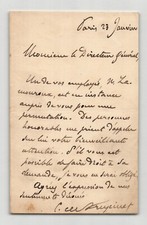 Paris 23 Janvier
Monsieur le Directeur Général,
Un de vos employés de La
est en instance
auprès de vous pour une
permutation. Des personnes
honorables me prient d'appeler
sur lui votre bienveillante
attention. S'il vous est
possible de faire droit à sa
demande, je vous en serai obligé.
Agréez l'expression de mes
sentiments